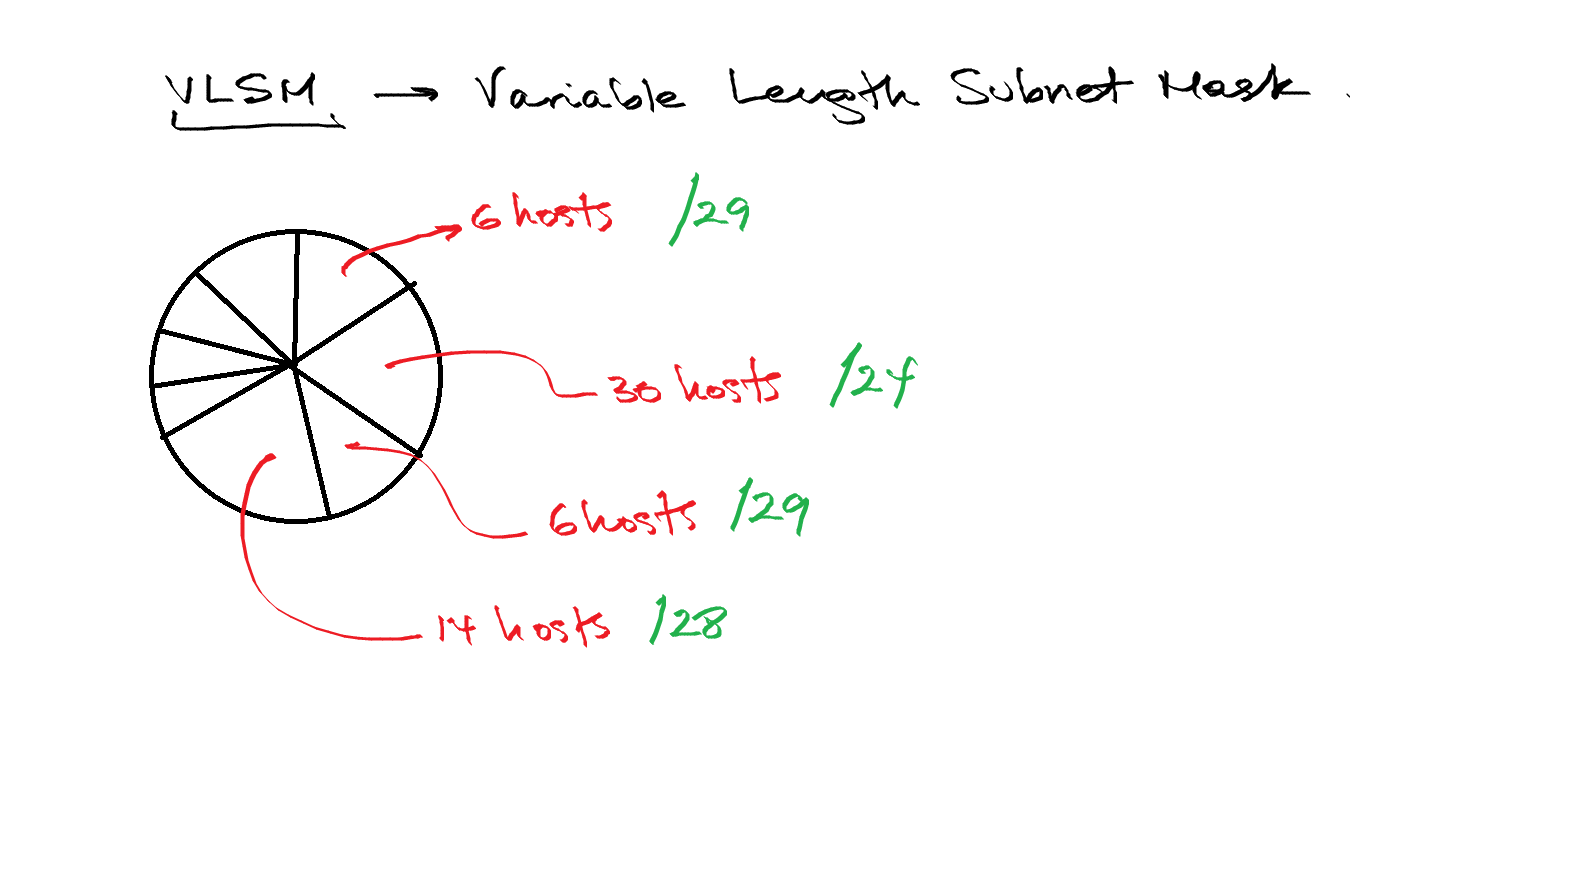 VLSM → Variable Length Subnet Mask.
6 hosts /29
30 hosts /24
6 hosts /29
14 hosts /28